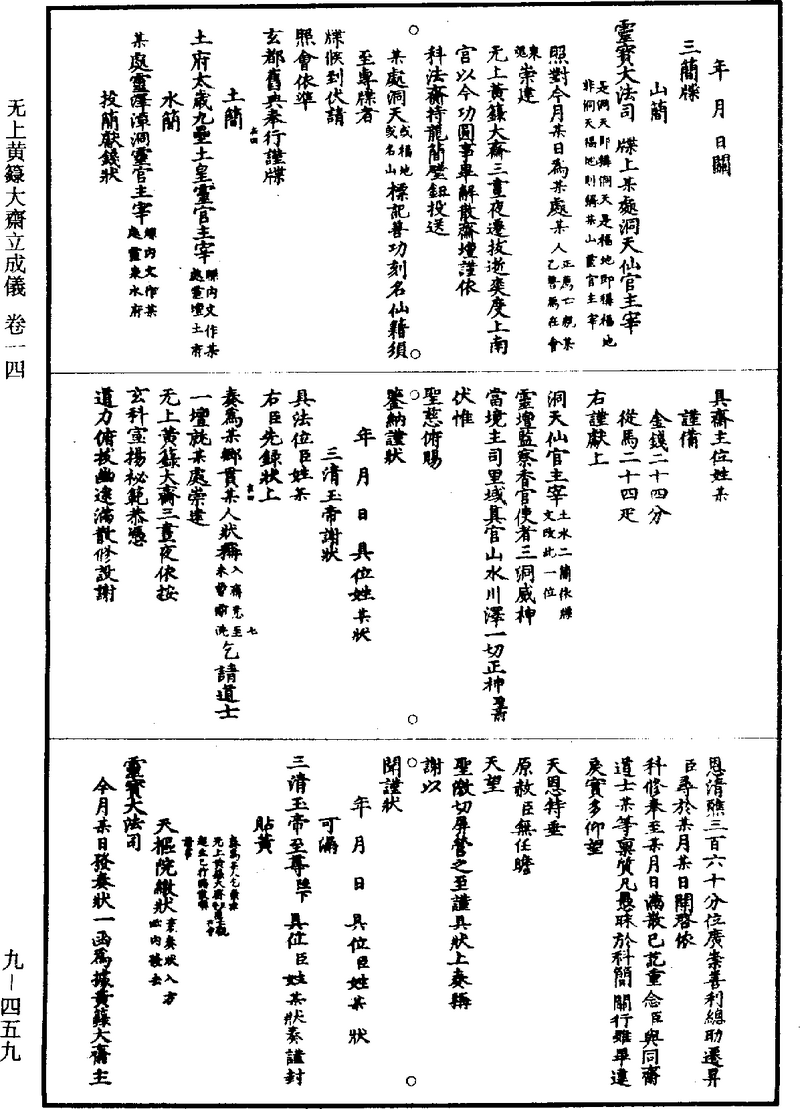 无上黄籙大齋立成儀 卷一四
九—四五九
年 月 日關
三簡牒
山簡
靈寶大法司 牒上某處洞天仙官主宰
是洞天即稱洞天是福地即稱福地
非洞天福地則稱某山靈官主宰
照對今月某日為某處某人正薦亡親某
乙普薦在會
崇建
无上黄籙大齋三晝夜遷拔逝爽度上南
宫以今功圓事畢解散齋壇謹依
科法齋持龍簡璧鈕投送
某處洞天或福地
或名山標記善功刻名仙籍須
至專牒者
牒候到伏請
照會依準
玄都舊典奉行謹牒
土簡
土府太歲九壘土皇靈官主宰牒内文作某
處靈壇土府
水簡
某處靈澤漳洞靈官主宰牒内文作某
處靈泉水府
投簡獻錢狀
具齋主位姓某
謹備
金錢二十四分
從馬二十四疋
右謹獻上
洞天仙官主宰土水二簡依牒
文改此一位
靈壇監察香官使者三洞威神
當境主司里域真官山水川澤一切正神
伏惟
聖慈俯賜
鑒納謹狀
年 月 日 具位姓某狀
三清玉帝謝狀
具法位臣姓某
右臣先錄狀上
奏為某鄉貫某人狀稱入齋意至
乞請道士
一壇就某處崇建
无上黄籙大齋三晝夜依按
玄科宣揚祕範恭憑
道力俯拔幽逵滿散修設謝
恩清醮三百六十分位廣崇善利總助遷昇
臣尋於某月某日開啓依
科修奉至某月日滿散已訖重念臣與同齋
道士某等稟質凡愚昧於科簡關行雖畢違
戾實多仰望
天恩特垂
原赦臣無任瞻
天望
聖激切屏營之至謹具狀上奏稱
謝以
聞謹狀
年 月 日 具位臣姓某 狀
可漏
三清玉帝至尊陛下 具位臣姓某狀奏謹封
貼黄
天樞院繳狀
靈寶大法司
今月某日發奏狀一函為據黄籙大齋主